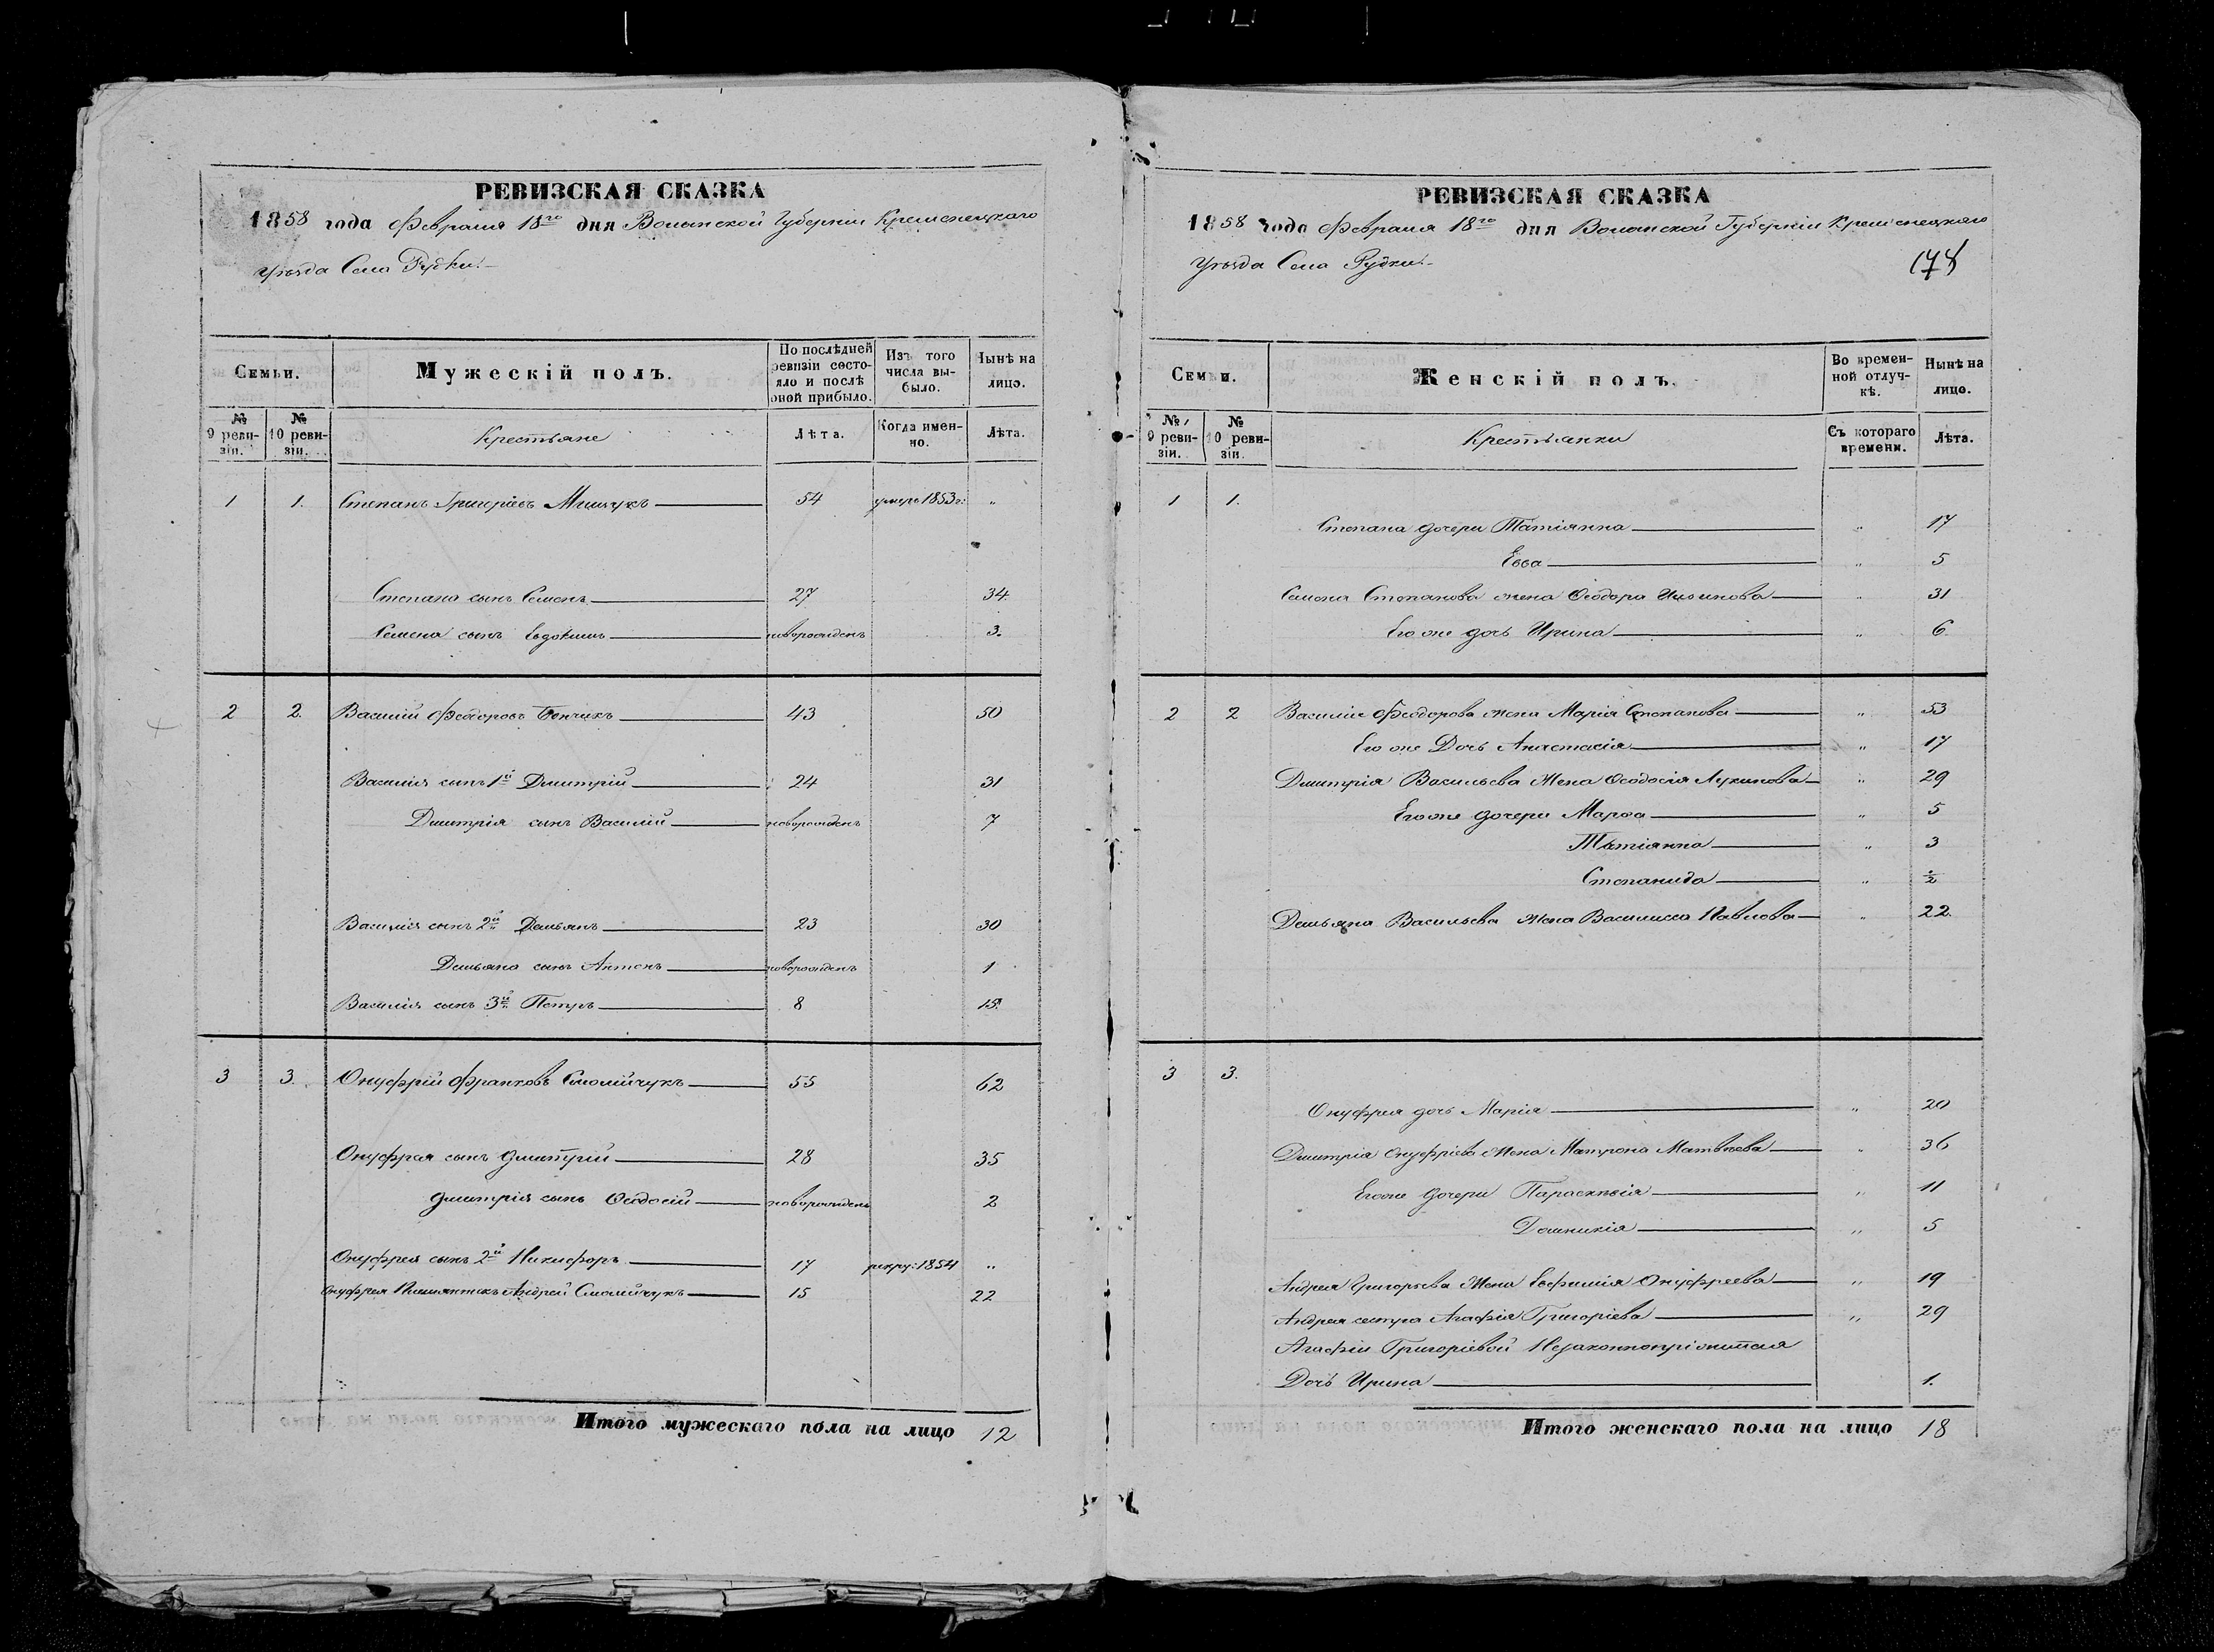 РЕВИЗСКАЯ СКАЗКА
1858 года Февраля 18го дня Волынской Губерніи Кременецкаго
Уѣзда Села Рудки.
Семьи.
Мужескій полъ.
По послѣдней ревизіи состояло и послѣ оной прибыло.
Изъ того числа выбыло.
Нынѣ на лицо.
№ 9 ревизіи.
№ 10 ревизіи.
Крестьяне
Лѣта.
Когда именно.
Лѣта.
1 1. Степанъ Григоріевъ Мишчукъ 54 умеръ 1853 г: "
Степана сынъ Семенъ 27 34
Семена сынъ Евдокимъ новорожденъ 3.
2 2. Василій Феодоровъ Бенчикъ 43 50
Василія сынъ 1й Дмитрій 24 31
Дмитрія сынъ Василій новорожденъ 7
Василія сынъ 2й Демьянъ 23 30
Демьяна сынъ Антонъ новорожденъ 1
Василія сынъ 3й Петръ 8 15.
3 3. Онуфрій Франковъ Смолійчукъ 55 62
Онуфрая сынъ Дмитрій 28 35
Дмитрія сынъ Ѳеодосій новорожденъ 2
Онуфрея сынъ 2й Никифоръ 17 рекру: 1854 "
Онуфрея Племянникъ Андрей Смолійчукъ 15 22
Итого мужескаго пола на лицо 12
РЕВИЗСКАЯ СКАЗКА
1858 года Февраля 18го дня Волынской Губерніи Кременецкаго
Уѣзда Села Рудки.
178
Семьи.
Женскій полъ.
Во временной отлучкѣ.
Нынѣ на лицо.
№ 9 ревизіи.
№ 10 ревизіи.
Крестьянки
Съ котораго времени.
Лѣта.
1 1.
Степана дочери Татіянна " 17
Евва " 5
Семена Степанова жена Ѳеодора " 31
Его же дочь Ирина " 6
2 2 Василія Феодорова жена Марія Степанова " 53
Его же Дочь Анастасія " 17
Дмитрія Васильева Жена Ѳеодосія Лукинова " 29
Его же дочери Марѳа " 5
Татіянна " 3
Степанида " 1/2
Демьяна Васильева жена Василисса Павлова " 22.
3 3.
Онуфрея дочь Марія " 20
Дмитрія Онуфріева Жена Матрона Матвѣева " 36
Его же дочери Параскевія " 11
Домникія " 5
Андрея Григорьева Жена Евфимія Онуфреева " 19
Андрея сестра Агафія Григоріева " 29
Агафіи Григоріевой Незаконноприжитая
Дочь Ирина 1.
Итого женскаго пола на лицо 18